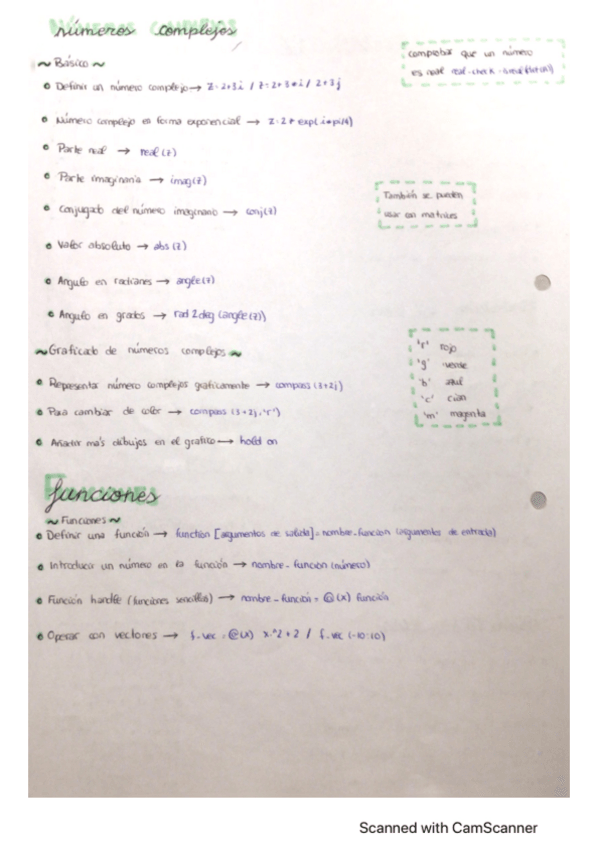 números complejos
~ Básico ~
comprobar que un número
es real real-check
• Definir un número complejo → z=2+3i / z=2+3*i / 2+3j
• Número complejo en forma exponencial → z=2*exp(i*pi/4)
• Parte real → real(z)
• Parte imaginaria → imag(z)
• Conjugado del número imaginario → conj(z)
También se pueden
usar con matrices
• Valor absoluto → abs(z)
• Angulo en radianes → angle(z)
• Angulo en grados → rad2deg(angle(z))
~ Graficado de números complejos ~
• Representar número complejos graficamente → compass(3+2j)
• Para cambiar de color → compass(3+2j,'r')
• Añadir más dibujos en el grafico → hold on
'r' rojo
'g' verde
'b' azul
'c' cian
'm' magenta
funciones
~ Funciones ~
• Definir una función → function [argumentos de salida]=nombre-funcion (argumentos de entrada)
• Introducir un número en la función → nombre-función (número)
• Función handle (funciones sencillas) → nombre-función = @(x) función
• Operar con vectores → f-vec = @(x) x.^2+2 / f-vec (-10:10)
Scanned with CamScanner